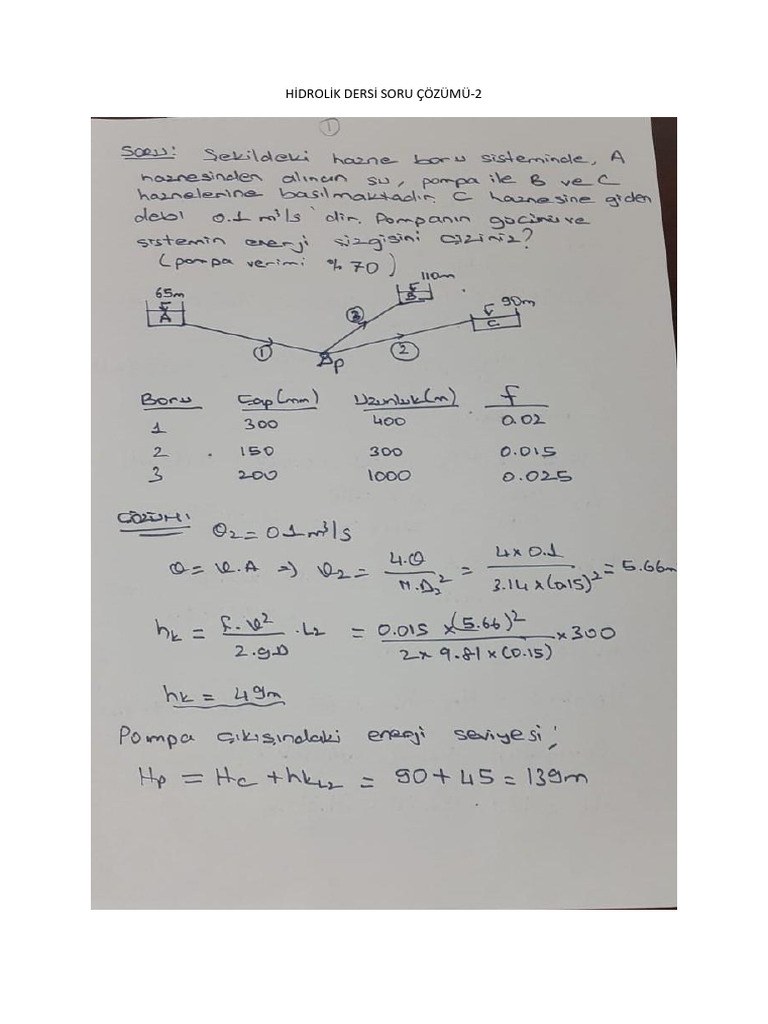 HİDROLİK DERSİ SORU ÇÖZÜMÜ-2
1
Soru: Şekildeki hazne boru sisteminde, A
haznesinden alınan su, pompa ile B ve C
haznelerine basılmaktadır. C haznesine giden
debi 0.1 m³/s dir. Pompanın gücünü ve
sistemin enerji sizgisini çiziniz?
(pompa verimi %70)
110m
65m
B
90m
A
3
C
1
2
P
Boru Çap(mm) Uzunluk(m) f
1 300 400 0.02
2 150 300 0.015
3 200 1000 0.025
ÇÖZÜM:
Q2 = 0.1 m³/s
Q = V.A => V2 = 4.Q / π.D2² = 4x0.1 / 3.14x(0.15)² = 5.66m
hk = f.V² / 2.g.D . L2 = 0.015 x(5.66)² / 2x9.81x(0.15) x300
hk = 49m
Pompa çıkışındaki enerji seviyesi;
Hp = Hc + hkL2 = 90 + 45 = 139m